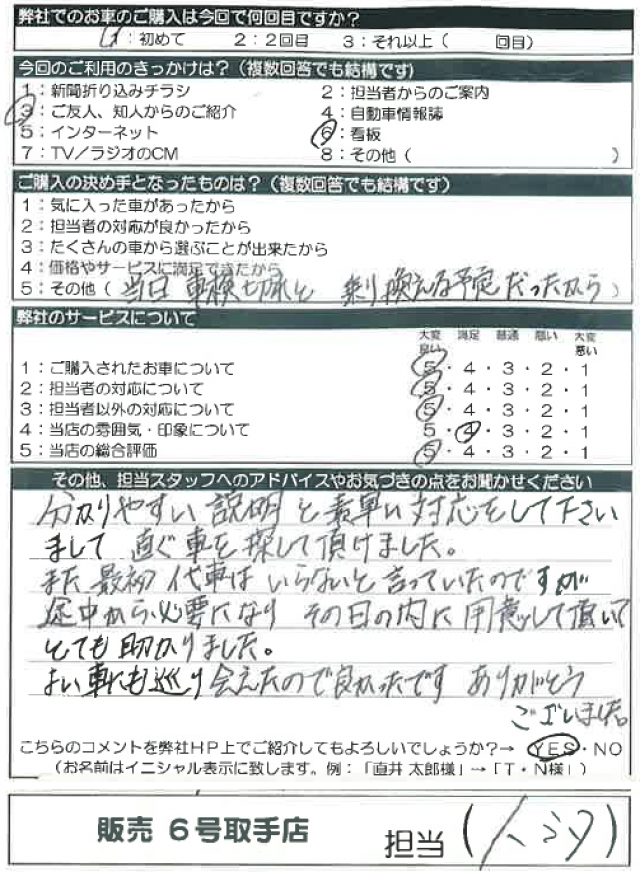 弊社でのお車のご購入は今回で何回目ですか？
1：初めて 2：2回目 3：それ以上（ 回目）
今回のご利用のきっかけは？（複数回答でも結構です）
1：新聞折り込みチラシ 2：担当者からのご案内
3：ご友人、知人からのご紹介 4：自動車情報誌
5：インターネット 6：看板
7：TV／ラジオのCM 8：その他（ ）
ご購入の決め手となったものは？（複数回答でも結構です）
1：気に入った車があったから
2：担当者の対応が良かったから
3：たくさんの車から選ぶことが出来たから
4：価格やサービスに満足できたから
5：その他（当日 車検切れと 乗り換える予定だったから）
弊社のサービスについて
大変良い 満足 普通 悪い 大変悪い
1：ご購入されたお車について 5・4・3・2・1
2：担当者の対応について 5・4・3・2・1
3：担当者以外の対応について 5・4・3・2・1
4：当店の雰囲気・印象について 5・4・3・2・1
5：当店の総合評価 5・4・3・2・1
その他、担当スタッフへのアドバイスやお気づきの点をお聞かせください
分かりやすい説明と素早い対応をして下さい
まして 直ぐ車を探して頂けました。
また最初代車はいらないと言っていたのですが
途中から必要になり その日の内に用意して頂いて
とても助かりました。
よい車にも巡り会えたので良かったです ありがとう
ございました。
こちらのコメントを弊社HP上でご紹介してもよろしいでしょうか？→ YES・NO
（お名前はイニシャル表示に致します。例：「直井 太郎様」→「T・N様」）
販売 6号取手店 担当（ ）